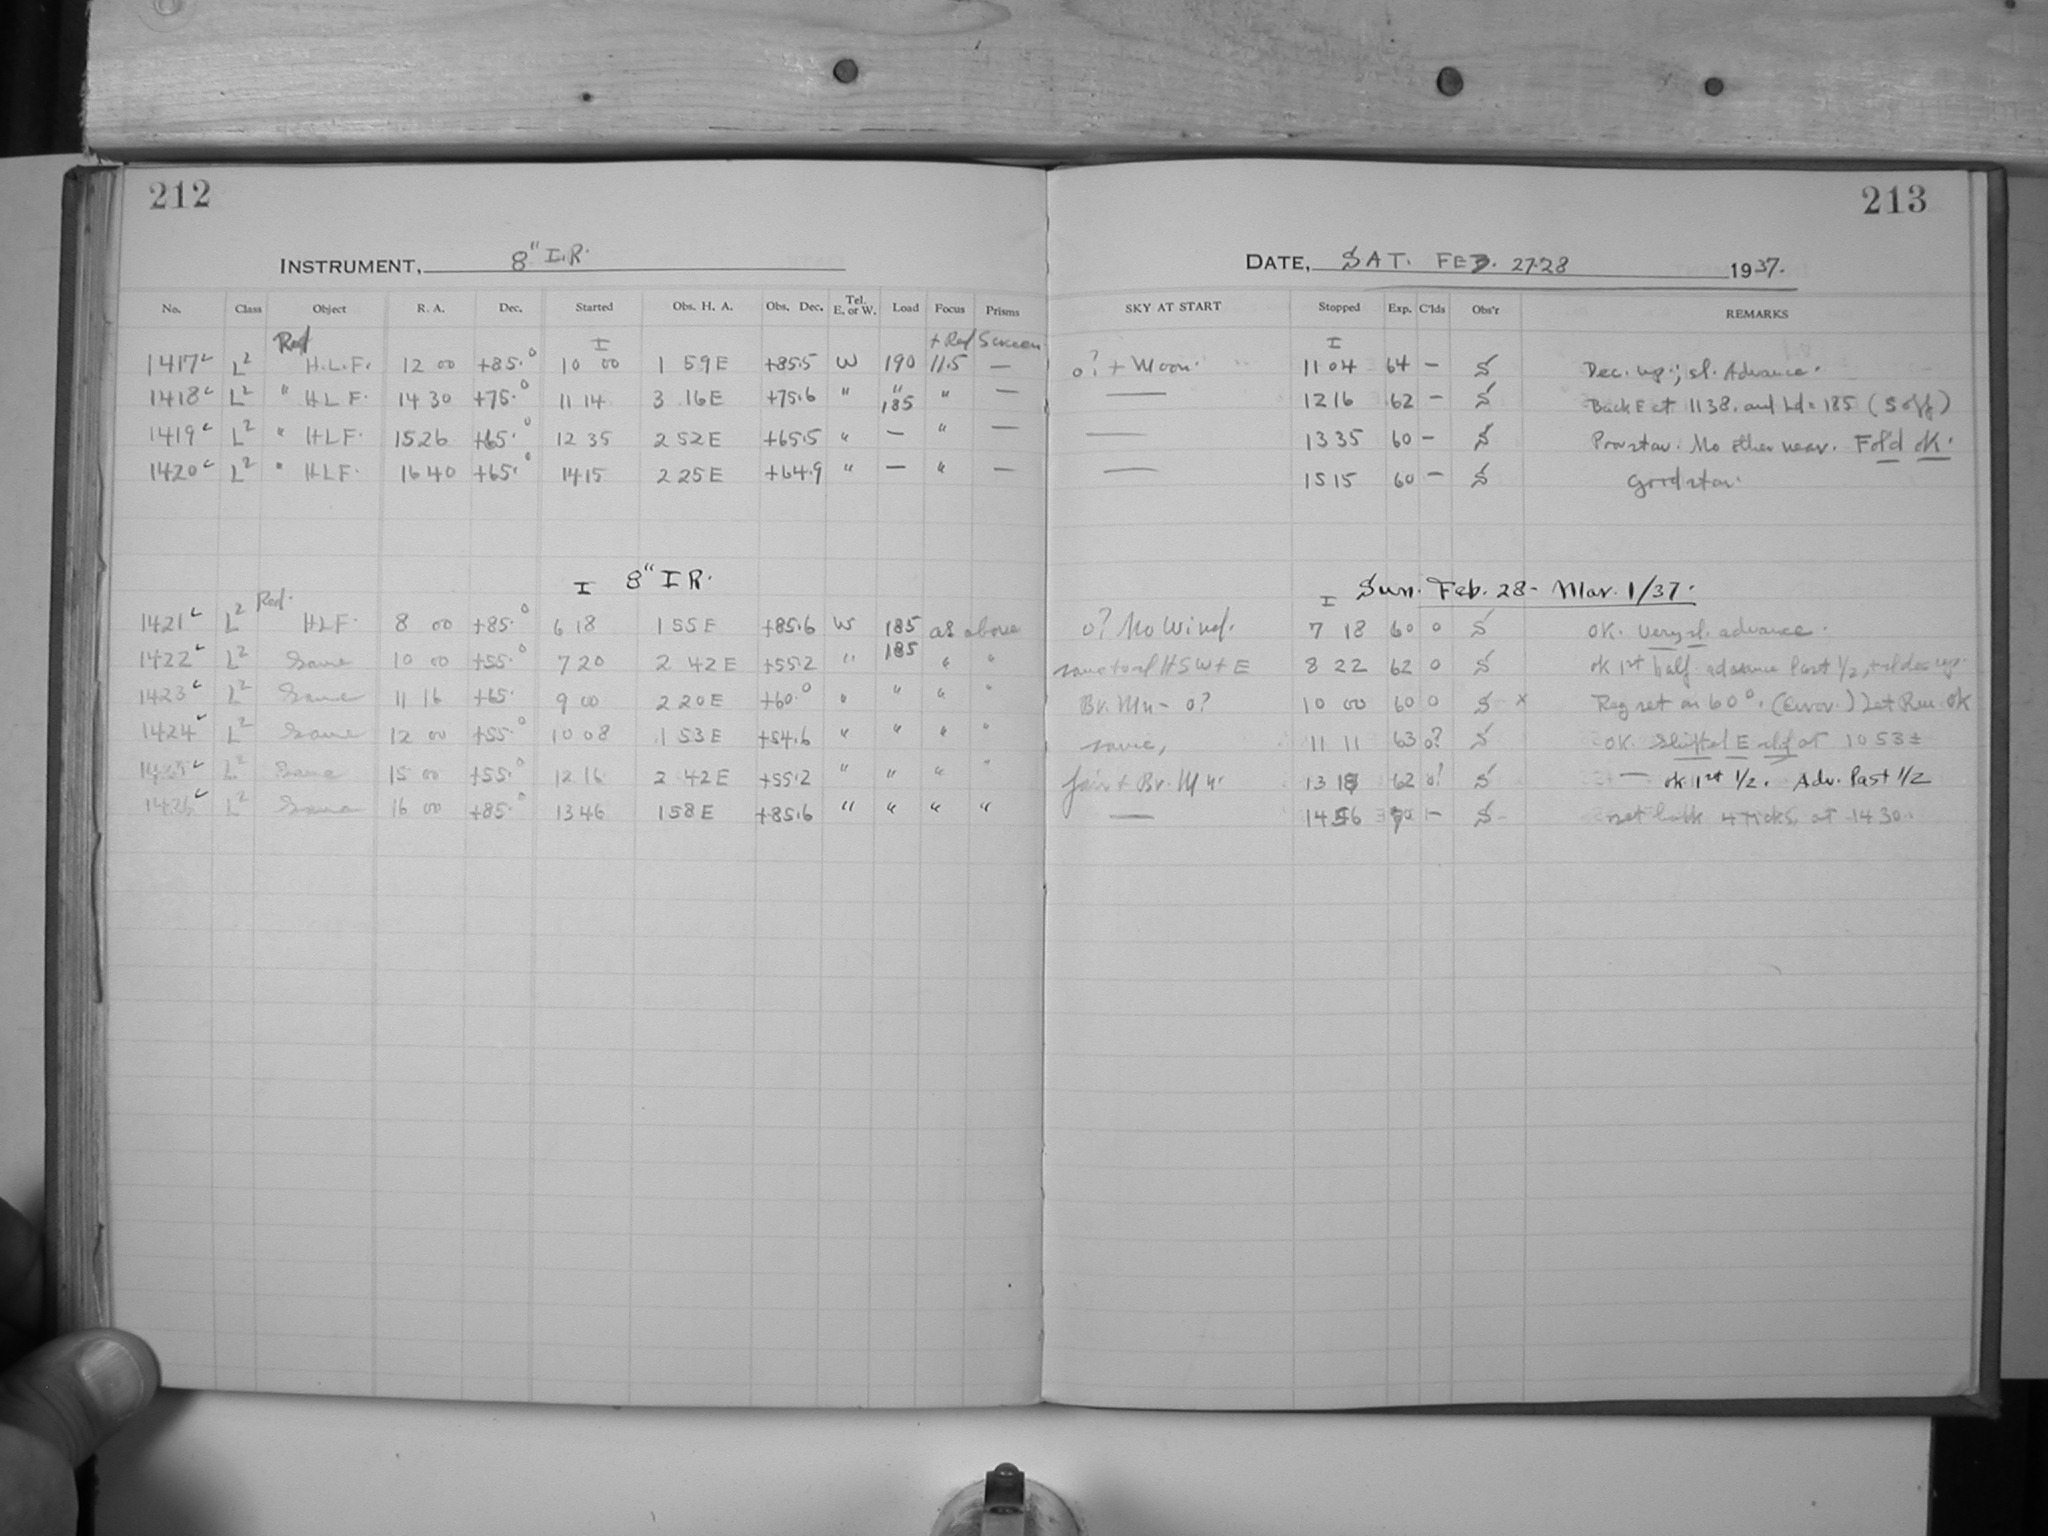 212
213
INSTRUMENT, 8" I.R.
DATE, SAT. FEB. 27-28 1937.
No. Class Object R. A. Dec. Started Obs. H. A. Obs. Dec. Tel. E. or W. Load Focus Prisms SKY AT START Stopped Exp. C'lds Obs'r REMARKS
Red I + Red Screen I
1417 L2 H.L.F. 12 00 +85.° 10 00 1 59E +85.5 W 190 11.5 — o? + Moon. 11 04 64 — S Dec. up.; sl. Advance.
1418 L2 " HLF. 14 30 +75.° 11 14 3 16E +75.6 " " 185 " — — 12 16 62 — S Back E at 1138. and Ld = 185 (5 off)
1419 L2 " HLF. 15 26 +65.° 12 35 2 52E +65.5 " — " — — 13 35 60 — S Poor star. No other near. Fo'd ok.
1420 L2 " HLF. 16 40 +65.° 14 15 2 25E +64.9 " — " — — 15 15 60 — S Good star.
I 8" I R. I Sun. Feb. 28 - Mar. 1/37.
Red.
1421 L2 HLF. 8 00 +85.° 6 18 1 55E +85.6 W 185 as above o? No Wind. 7 18 60 0 S OK. Very sl. advance.
1422 L2 Same 10 00 +55.° 7 20 2 42E +55.2 " 185 " " SW + E 8 22 62 0 S ok 1st half. advance last 1/2, + sl dec up.
1423 L2 Same 11 16 +65. 9 00 2 20E +60.° " " " " Br. Mn - o? 10 00 60 0 S x Reg set on 60°. (Error.) Let Run OK
1424 L2 Same 12 00 +55.° 10 08 1 53E +54.6 " " " " same, 11 11 63 0? S OK. Shifted E at 10 53±
1425 L2 Same 15 00 +55.° 12 16 2 42E +55.2 " " " " fair + Br. Mn. 13 18 62 0? S — ok 1st 1/2. Adv. last 1/2
1426 L2 Same 16 00 +85.° 13 46 1 58E +85.6 " " " " — 14 56 70 — S set back 4 ticks, at 14 30.